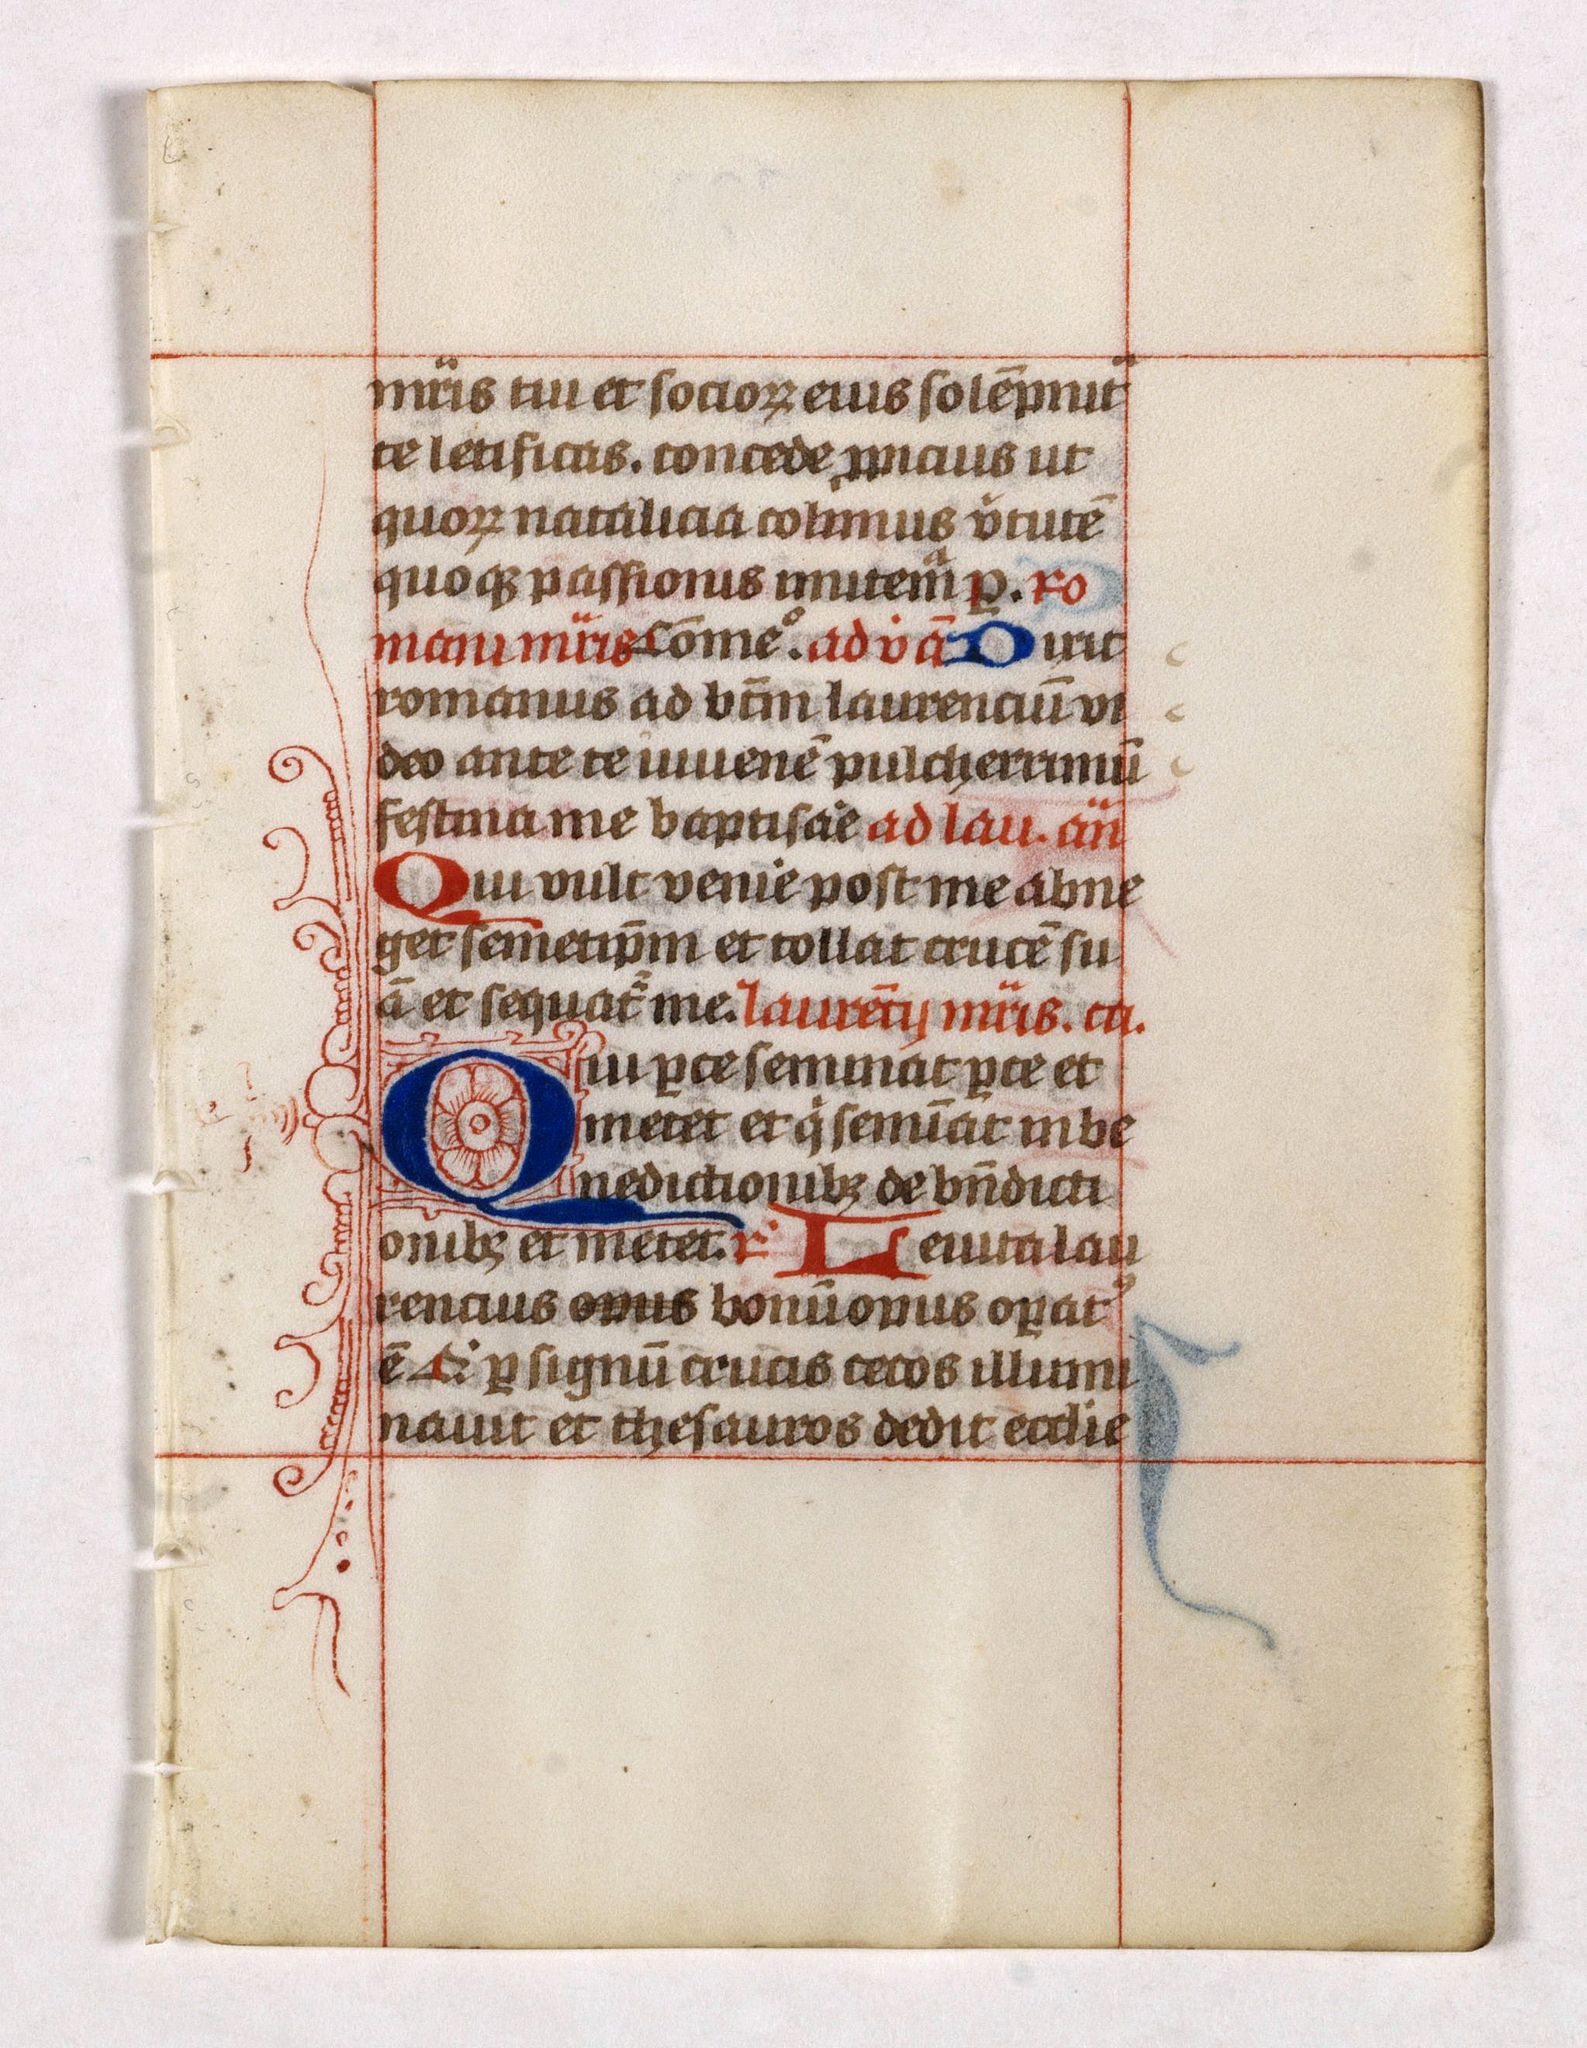 mr̃is tui et socioꝝ eius solẽpnita
te letificas. concede ꝓpicius ut
quoꝝ natalicia colimus v̾tutẽ
quoqꝫ passionis imitemᷓ ꝑ. ro
mani mr̃is Cõmeº. ad v̾ã Dixit
romanus ad bt̃m laurenciũ vi
deo ante te iuuenẽ pulcherrimũ
festina me baptisar̾e ad lau. añ
Qui vult venir̾e post me abne
get semetip̃m et tollat crucẽ su
ã et sequat᷑ me. laurẽcij mr̃is. ca.
Qui ꝑce seminat ꝑce et
metet et qͥ semĩat in be
nedictionibꝫ de bñdicti
onibꝫ et metet. r̾ Leuita lau
rencius opus bonũ opus oꝑatꝰ
ẽ Qͥ ꝑ signũ crucis cecos illumi
nauit et thesauros dedit ecclie